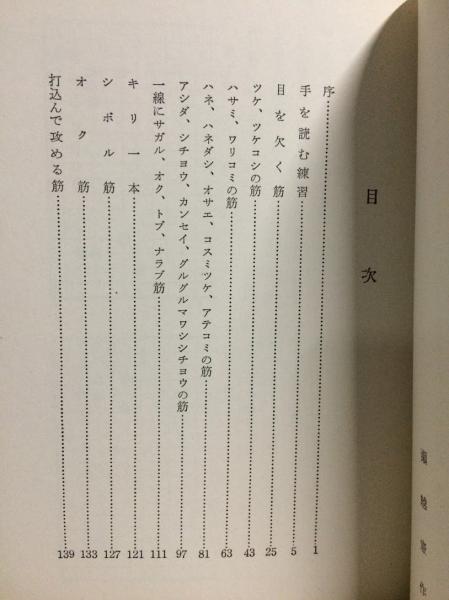 目次
序……1
手を読む練習……5
目を欠く筋……25
ツケ、ツケコシの筋……43
ハサミ、ワリコミの筋……63
ハネ、ハネダシ、オサエ、コスミツケ、アテコミの筋……81
アシダ、シチョウ、カンセイ、グルグルマワシシチョウの筋……97
一線にサガル、オク、トブ、ナラブ筋……111
キリ一本……121
シボル筋……127
オク筋……133
打込んで攻める筋……139